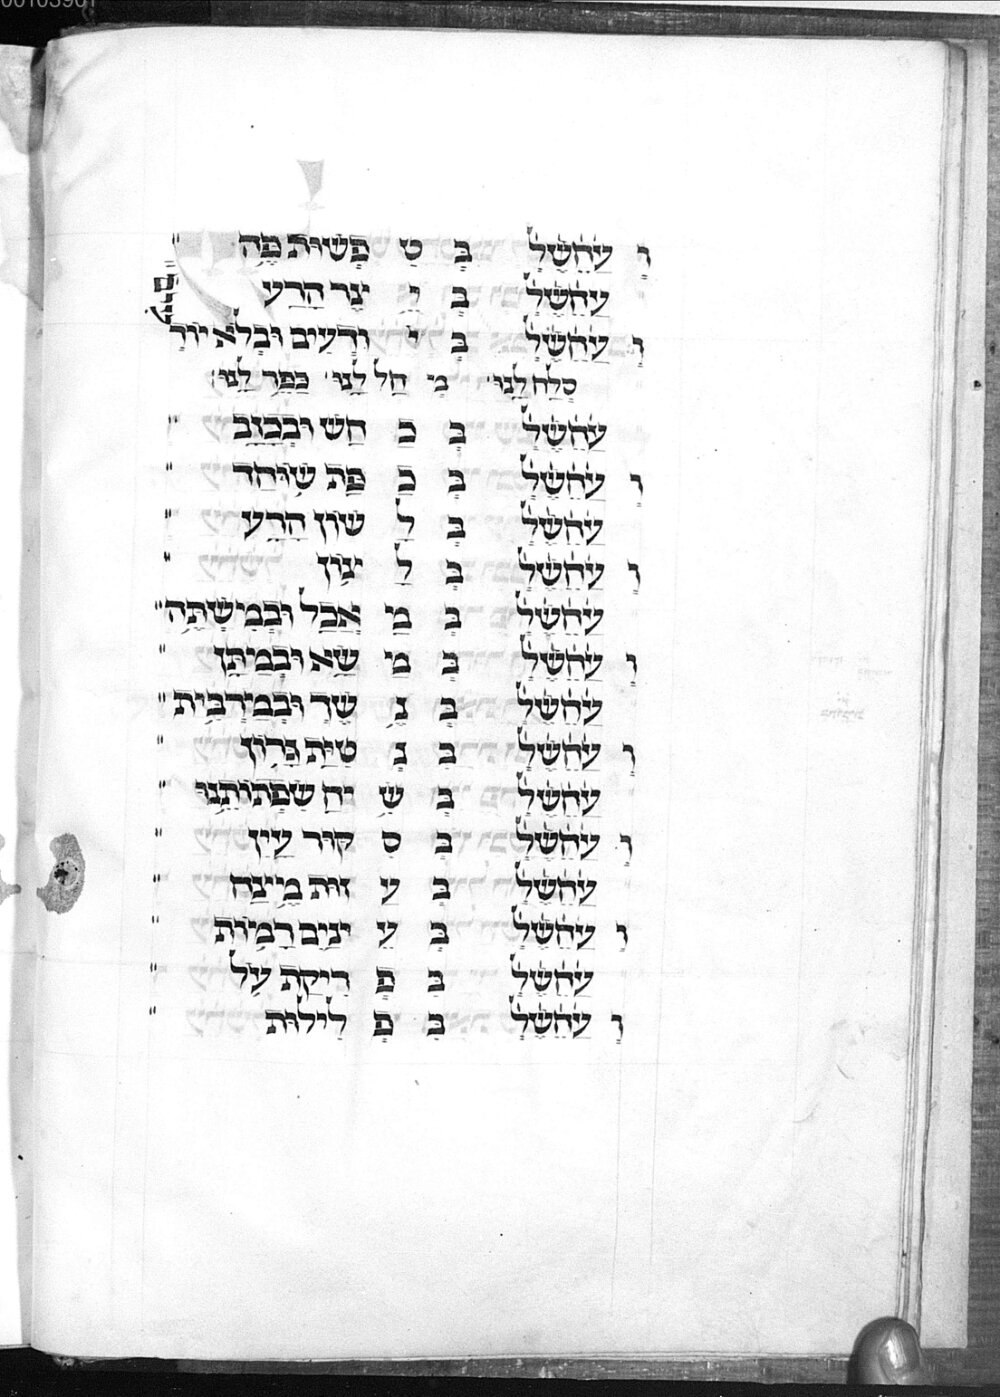 ו עחשל ב ט פשות פה
עחשל ב י צר הרע
ו עחשל ב י ודעים ובלא יוד
סלח לנו מ חל לנו כפר לנו
עחשל ב כ חש ובכזב
ו עחשל ב כ פת שוחד
עחשל ב ל שון הרע
ו עחשל ב ל יצון
עחשל ב מ אכל ובמישתה
ו עחשל ב מ שא ובמתן
עחשל ב נ שך ובמרבית
ו עחשל ב נ טית גרון
עחשל ב ש יח שפתותנו
ו עחשל ב ס קור עין
עחשל ב ע זות מיצח
ו עחשל ב ע ינים רמות
עחשל ב פ ריקת על
ו עחשל ב פ לילות